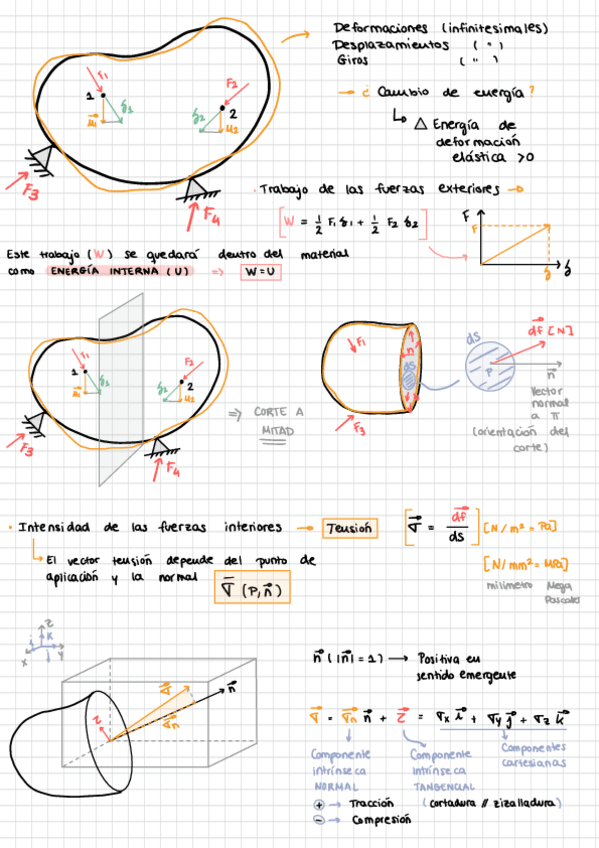 Deformaciones (infinitesimales)
Desplazamientos ( " )
Giros ( " )
F₁
F₂
1
2
δ₁
δ₂
u₁
u₂
F₃
F₄
¿ Cambio de energía?
△ Energía de
deformación
elástica >0
· Trabajo de las fuerzas exteriores
[W = 1/2 F₁ δ₁ + 1/2 F₂ δ₂]
F
F
δ
δ
Este trabajo (W) se quedará dentro del material
como ENERGÍA INTERNA (U) ⇒ W=U
F₁
F₂
1
2
δ₁
δ₂
u₁
u₂
F₃
F₄
⇒ CORTE A
MITAD
F₁
n
ds
F₃
ds
P
df [N]
n
Vector
normal
a π
(orientación del
corte)
· Intensidad de las fuerzas interiores → Tensión
[σ = df/ds] [N/m² = Pa]
El vector tensión depende del punto de
aplicación y la normal σ (P, n)
[N/mm² = MPa]
milímetro Mega
Pascales
z
i
k
x
y
j
σ
n
σn
τ
n (|n| = 1) → Positiva en
sentido emergente
σ = σn n + τ = σx i + σy j + σz k
Componente
intrínseca
NORMAL
Componente
intrínseca
TANGENCIAL
Componentes
cartesianas
+ → Tracción (cortadura // zizalladura)
- → Compresión